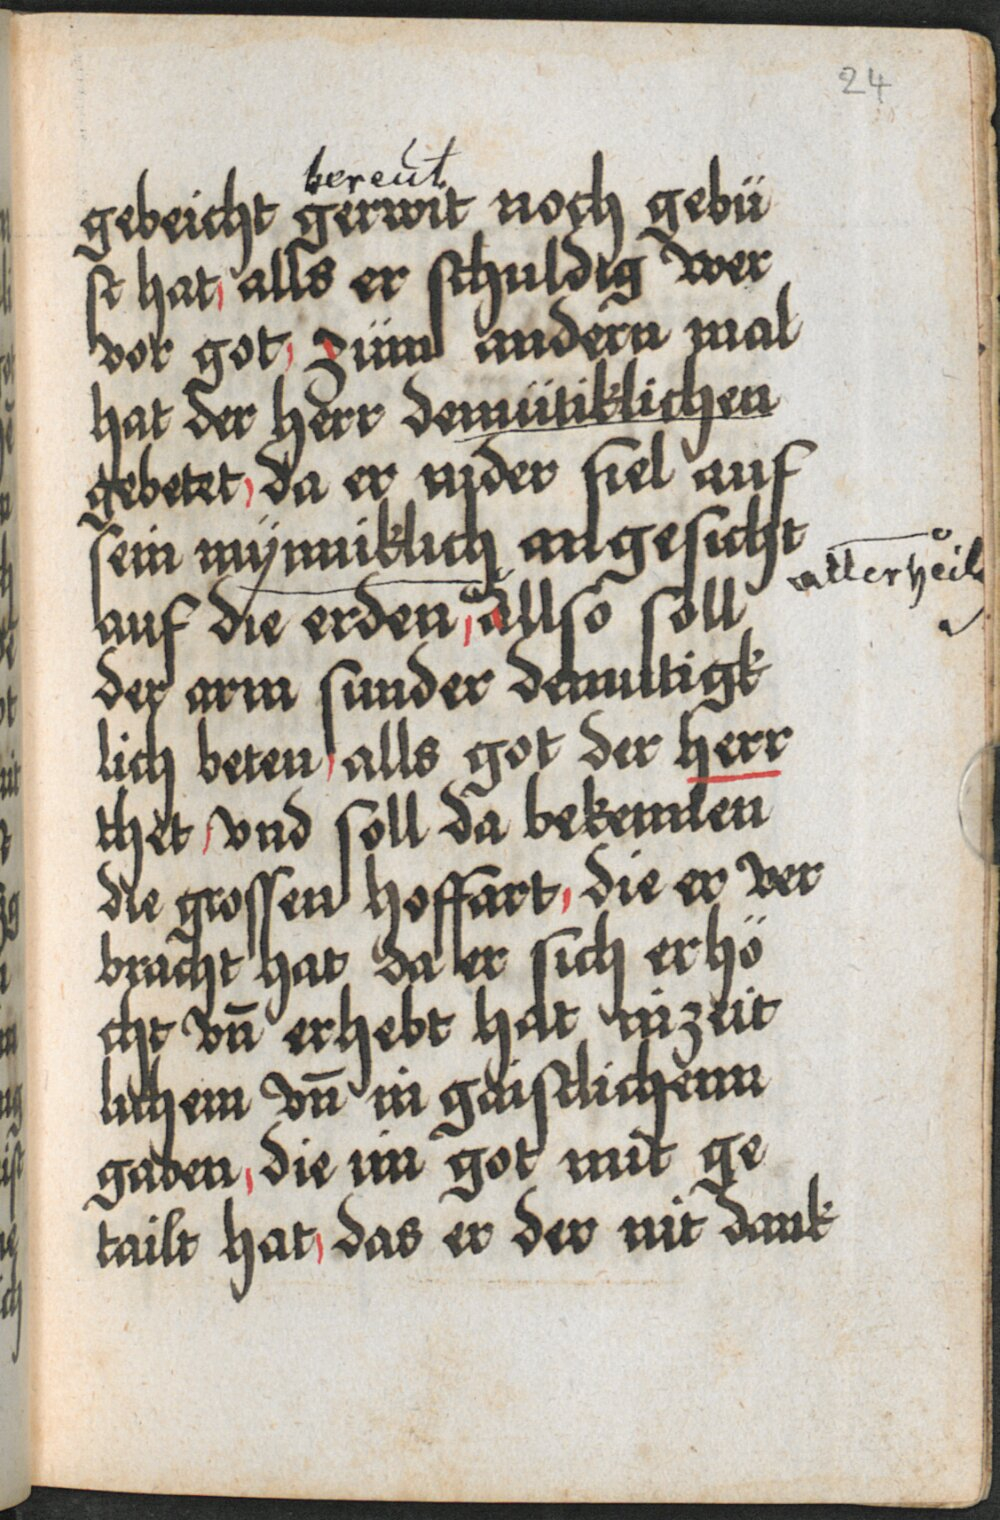 24
bereut
gebeicht gerwit noch gebü
st hat, alls er schuldig wer
vor got, züm andern mal
hat der herr demütiklichen
gebetet, da er nyder fiel auf
sein mynniklich angesicht
allerheil
auf die erden, allso soll
der arm sunder demutigk
lich beten, alls got der herr
thet, vnd soll da bekennen
die grossen hoffart, die er ver
bracht hat da er sich erhö
cht vn̄ erhebt hat inzeit
lichem vn̄ in gaistlichenn
gaben, die im got mit ge
tailt hat, das er der nit dank